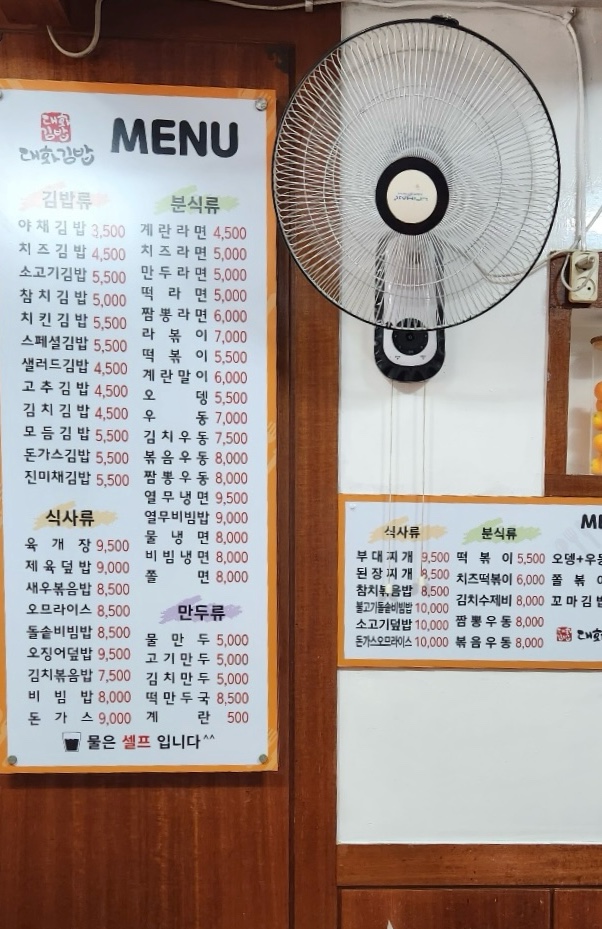 대화
김밥
대화김밥
MENU
김밥류
야채김밥 3,500
치즈김밥 4,500
소고기김밥 5,500
참치김밥 5,000
치킨김밥 5,500
스페셜김밥 5,500
샐러드김밥 4,500
고추김밥 4,500
김치김밥 4,500
모듬김밥 5,500
돈가스김밥 5,500
진미채김밥 5,500
식사류
육개장 9,500
제육덮밥 9,000
새우볶음밥 8,500
오므라이스 8,500
돌솥비빔밥 8,500
오징어덮밥 9,500
김치볶음밥 7,500
비빔밥 8,000
돈가스 9,000
분식류
계란라면 4,500
치즈라면 5,000
만두라면 5,000
떡라면 5,000
짬뽕라면 6,000
라볶이 7,000
떡볶이 5,500
계란말이 6,000
오뎅 5,500
우동 7,000
김치우동 7,500
볶음우동 8,000
짬뽕우동 8,000
열무냉면 9,500
열무비빔밥 9,000
물냉면 8,000
비빔냉면 8,000
쫄면 8,000
만두류
물만두 5,000
고기만두 5,000
김치만두 5,000
떡만두국 8,500
계란 500
물은 셀프 입니다^^
식사류
부대찌개 9,500
된장찌개 8,500
참치볶음밥 8,500
불고기돌솥비빔밥 10,000
소고기덮밥 10,000
돈가스오므라이스 10,000
분식류
떡볶이 5,500
치즈떡볶이 6,000
김치수제비 8,000
짬뽕우동 8,000
볶음우동 8,000
ME
오뎅+우동
쫄볶
꼬마김밥
대화